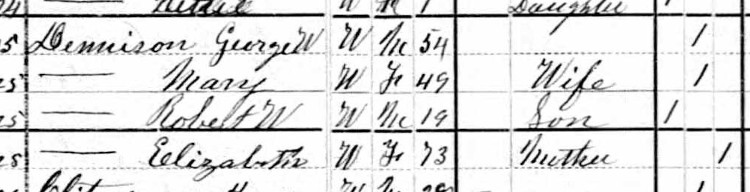 Daughter 1
5 Dennison George W W M 54 1
5 —— Mary W F 49 Wife 1
5 —— Robert W W M 19 Son 1
5 —— Elizabeth W F 73 Mother 1